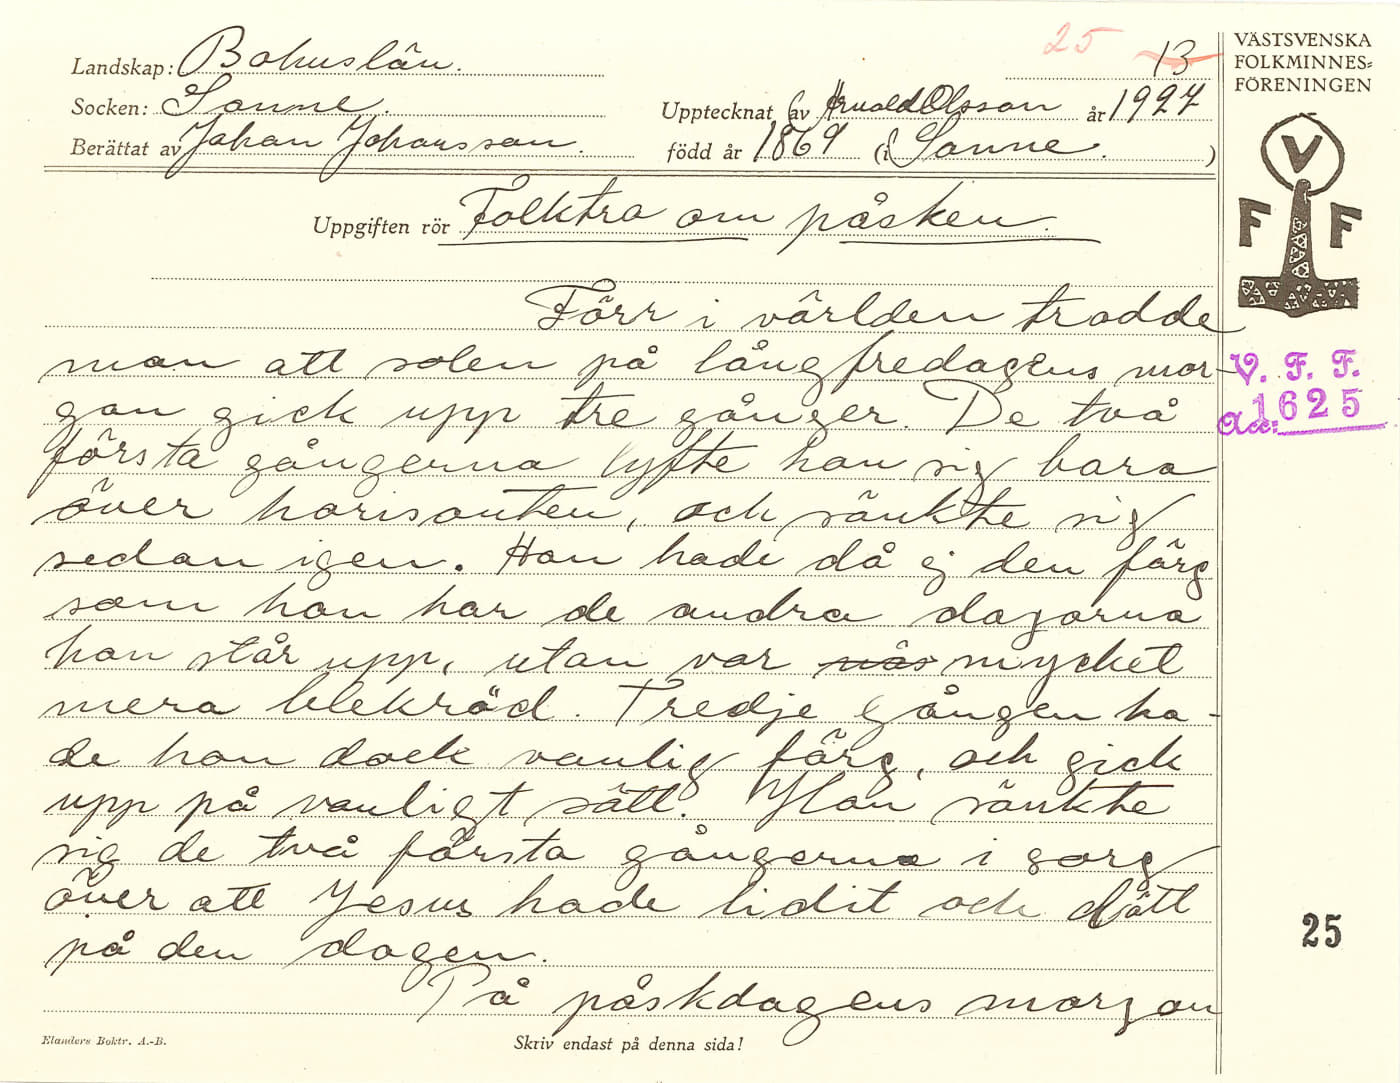 25 13
Landskap: Bohuslän.
Socken: Sanne. Upptecknat av Arnold Olsson år 1927
Berättat av Johan Johansson. född år 1869 (i Sanne. )
Uppgiften rör Folktro om påsken.
Förr i världen trodde
man att solen på långfredagens mor-
gon gick upp tre gånger. De två
första gångerna lyfte han sig bara
över horisonten, och sänkte sig
sedan igen. Han hade då ej den färg
som han har de andra dagarna
han står upp, utan var mycket
mera blekröd. Tredje gången ha-
de han dock vanlig färg, och gick
upp på vanligt sätt. Han sänkte
sig de två första gångerna i sorg
över att Jesus hade lidit och dött
på den dagen.
På påskdagens morgon
Elanders Boktr. A.-B.
Skriv endast på denna sida!
VÄSTSVENSKA
FOLKMINNES=
FÖRENINGEN
V
F F
V. F. F.
Acc: 1625
25